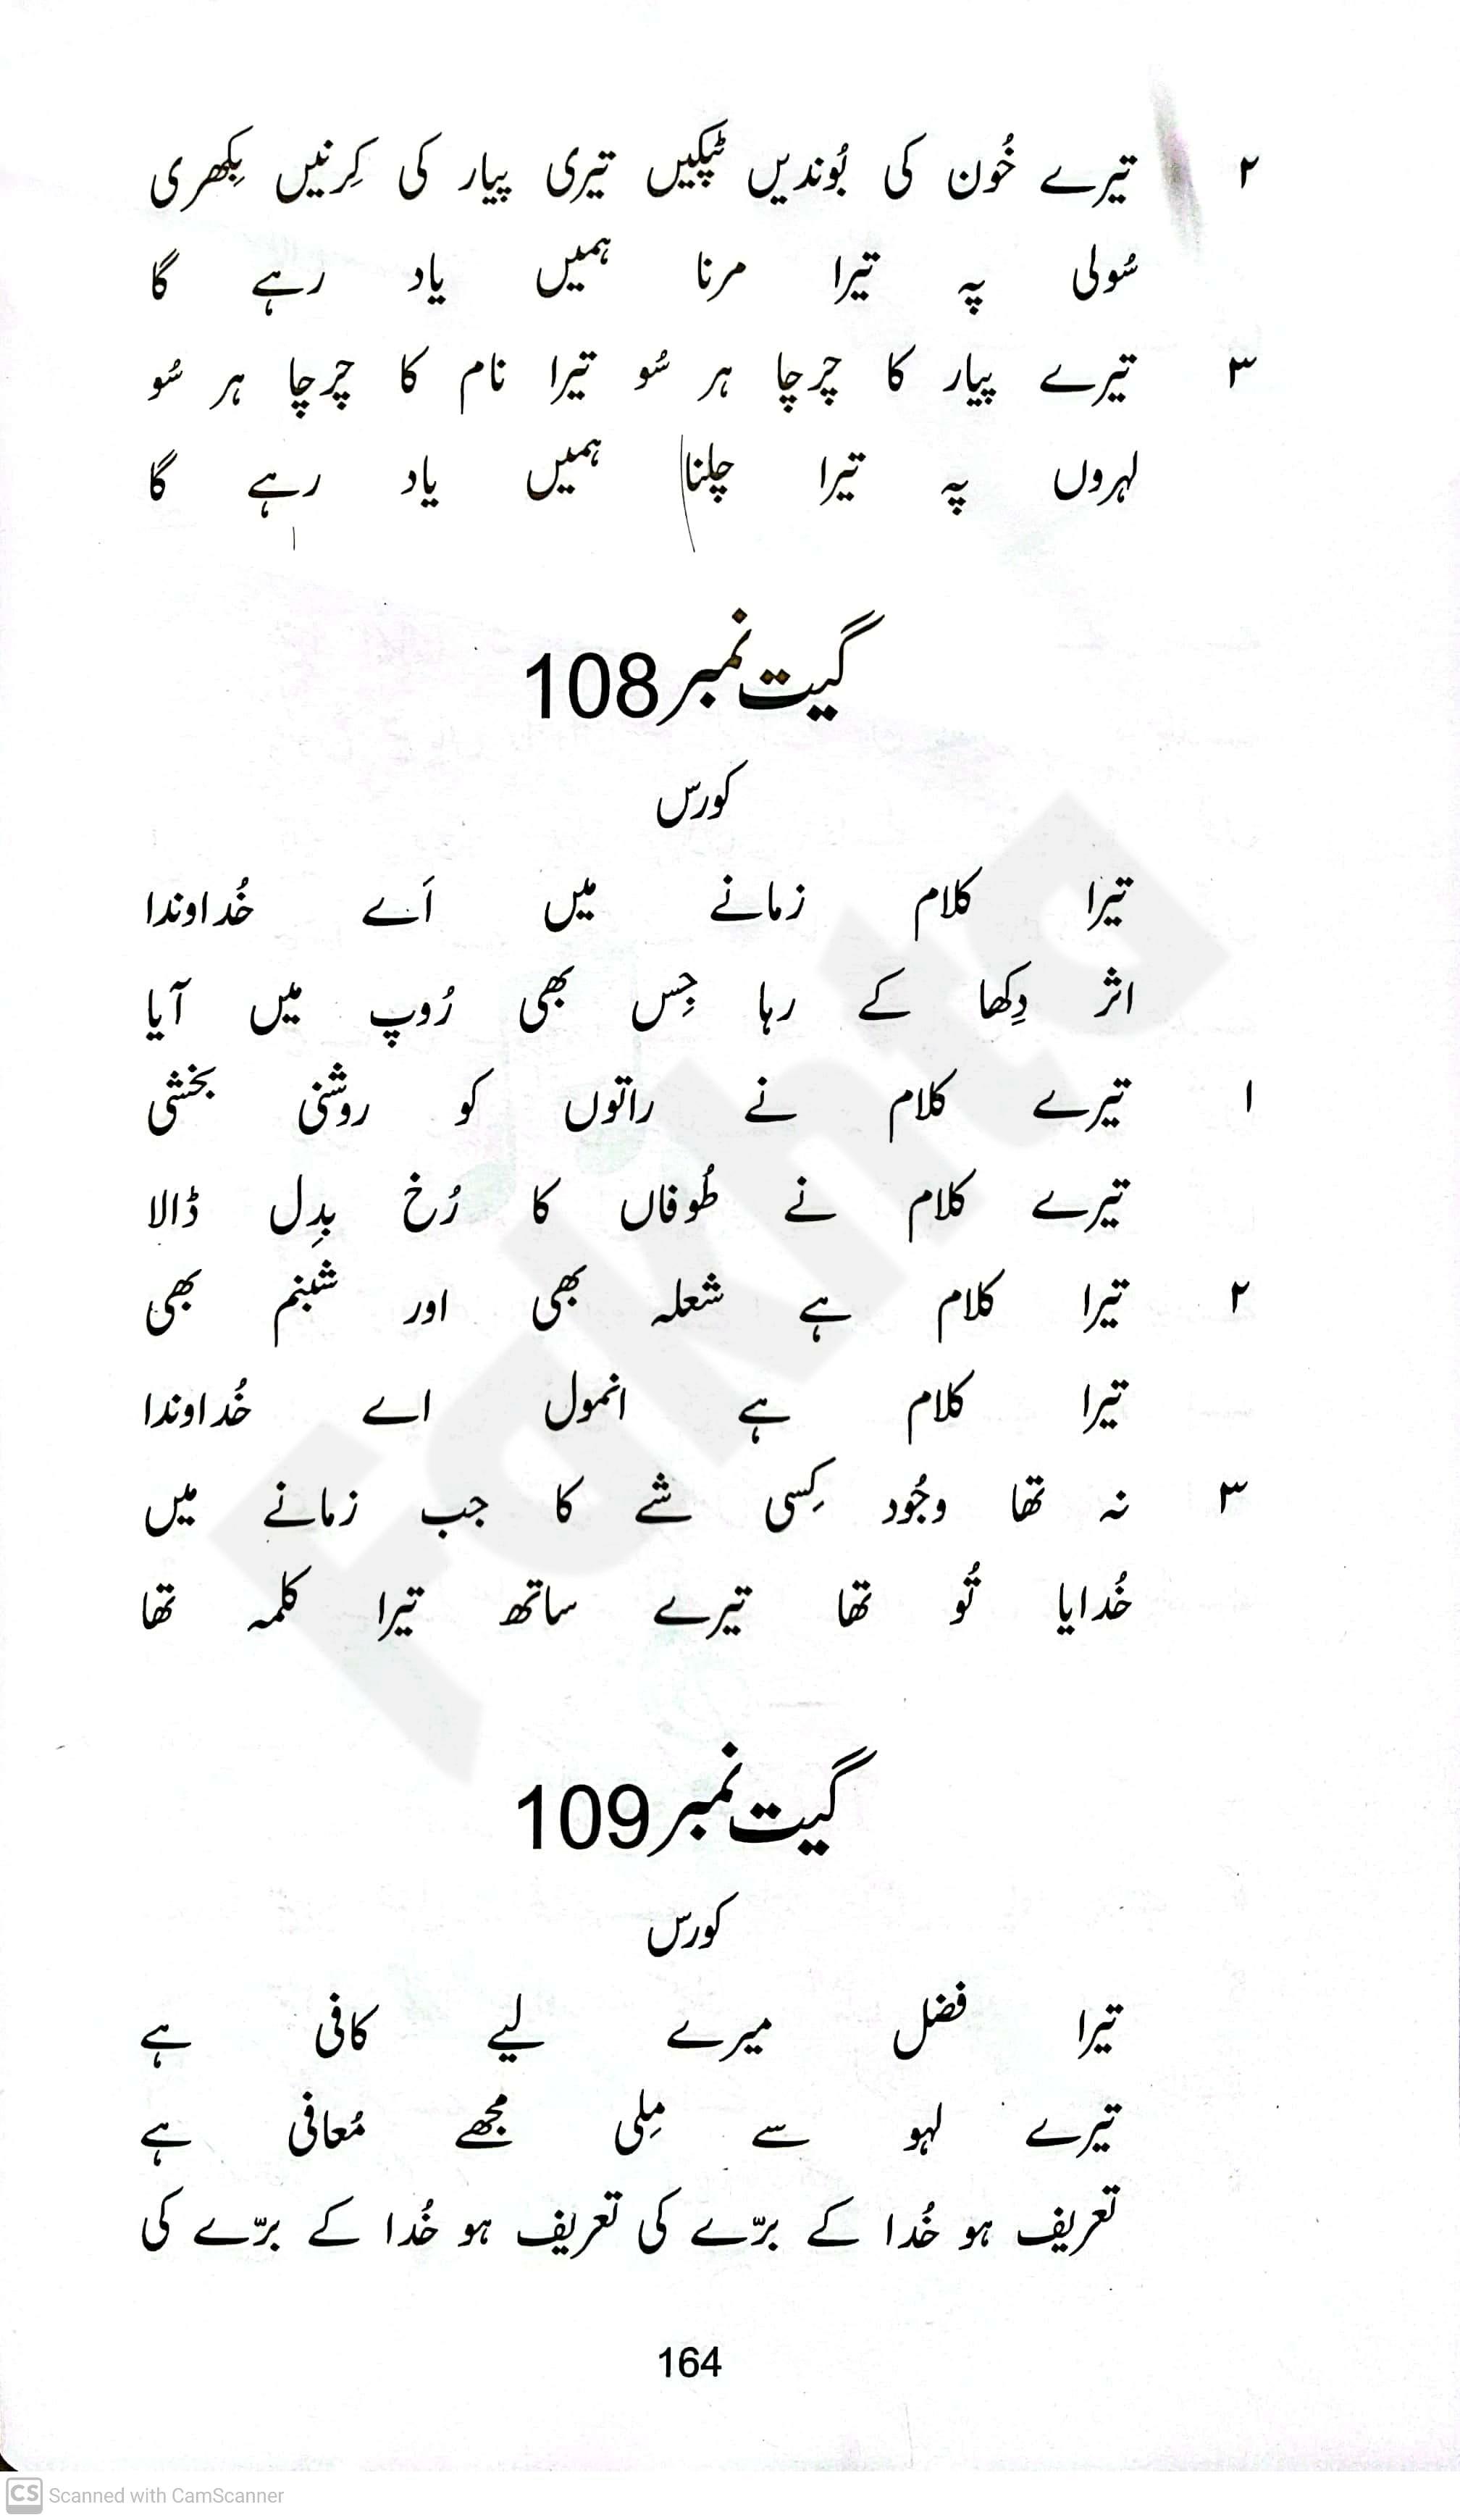 ۲ تیرے خُون کی بُوندیں ٹپکیں تیری پیار کی کِرنیں بِکھری
سُولی پہ تیرا مرنا ہمیں یاد رہے گا
۳ تیرے پیار کا چرچا ہر سُو تیرا نام کا چرچا ہر سُو
لہروں پہ تیرا چلنا ہمیں یاد رہے گا
گیت نمبر 108
کورس
تیرا کلام زمانے میں اَے خُداوندا
اثر دِکھا کے رہا جِس بھی رُوپ میں آیا
۱ تیرے کلام نے راتوں کو روشنی بخشی
تیرے کلام نے طُوفاں کا رُخ بدِل ڈالا
۲ تیرا کلام ہے شعلہ بھی اور شبنم بھی
تیرا کلام ہے انمول اے خُداوندا
۳ نہ تھا وجُود کِسی شے کا جب زمانے میں
خُدایا تُو تھا تیرے ساتھ تیرا کلمہ تھا
گیت نمبر 109
کورس
تیرا فضل میرے لیے کافی ہے
تیرے لہو سے مِلی مجھے مُعافی ہے
تعریف ہو خُدا کے برّے کی تعریف ہو خُدا کے برّے کی
164
Fakhta
CS Scanned with CamScanner